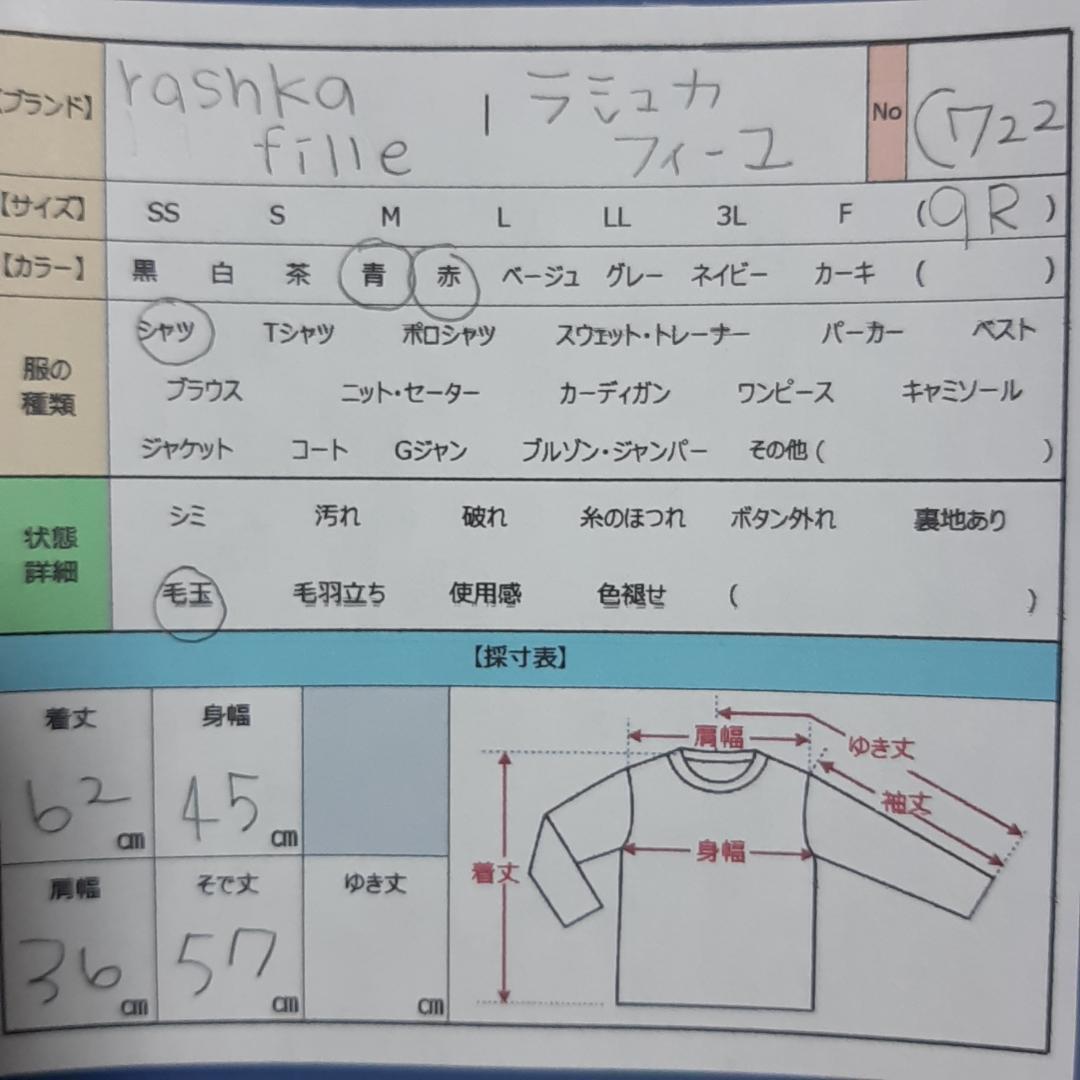 【ブランド】 rashka fille | ラシュカ フィーユ No (1722
【サイズ】 SS S M L LL 3L F (9R)
【カラー】 黒 白 茶 青 赤 ベージュ グレー ネイビー カーキ ( )
服の種類
シャツ Tシャツ ポロシャツ スウェット・トレーナー パーカー ベスト
ブラウス ニット・セーター カーディガン ワンピース キャミソール
ジャケット コート Gジャン ブルゾン・ジャンパー その他 ( )
状態詳細
シミ 汚れ 破れ 糸のほつれ ボタン外れ 裏地あり
毛玉 毛羽立ち 使用感 色褪せ ( )
【採寸表】
着丈 身幅
62cm 45cm
肩幅 そで丈 ゆき丈
36cm 57cm cm
肩幅 ゆき丈
袖丈
身幅
着丈